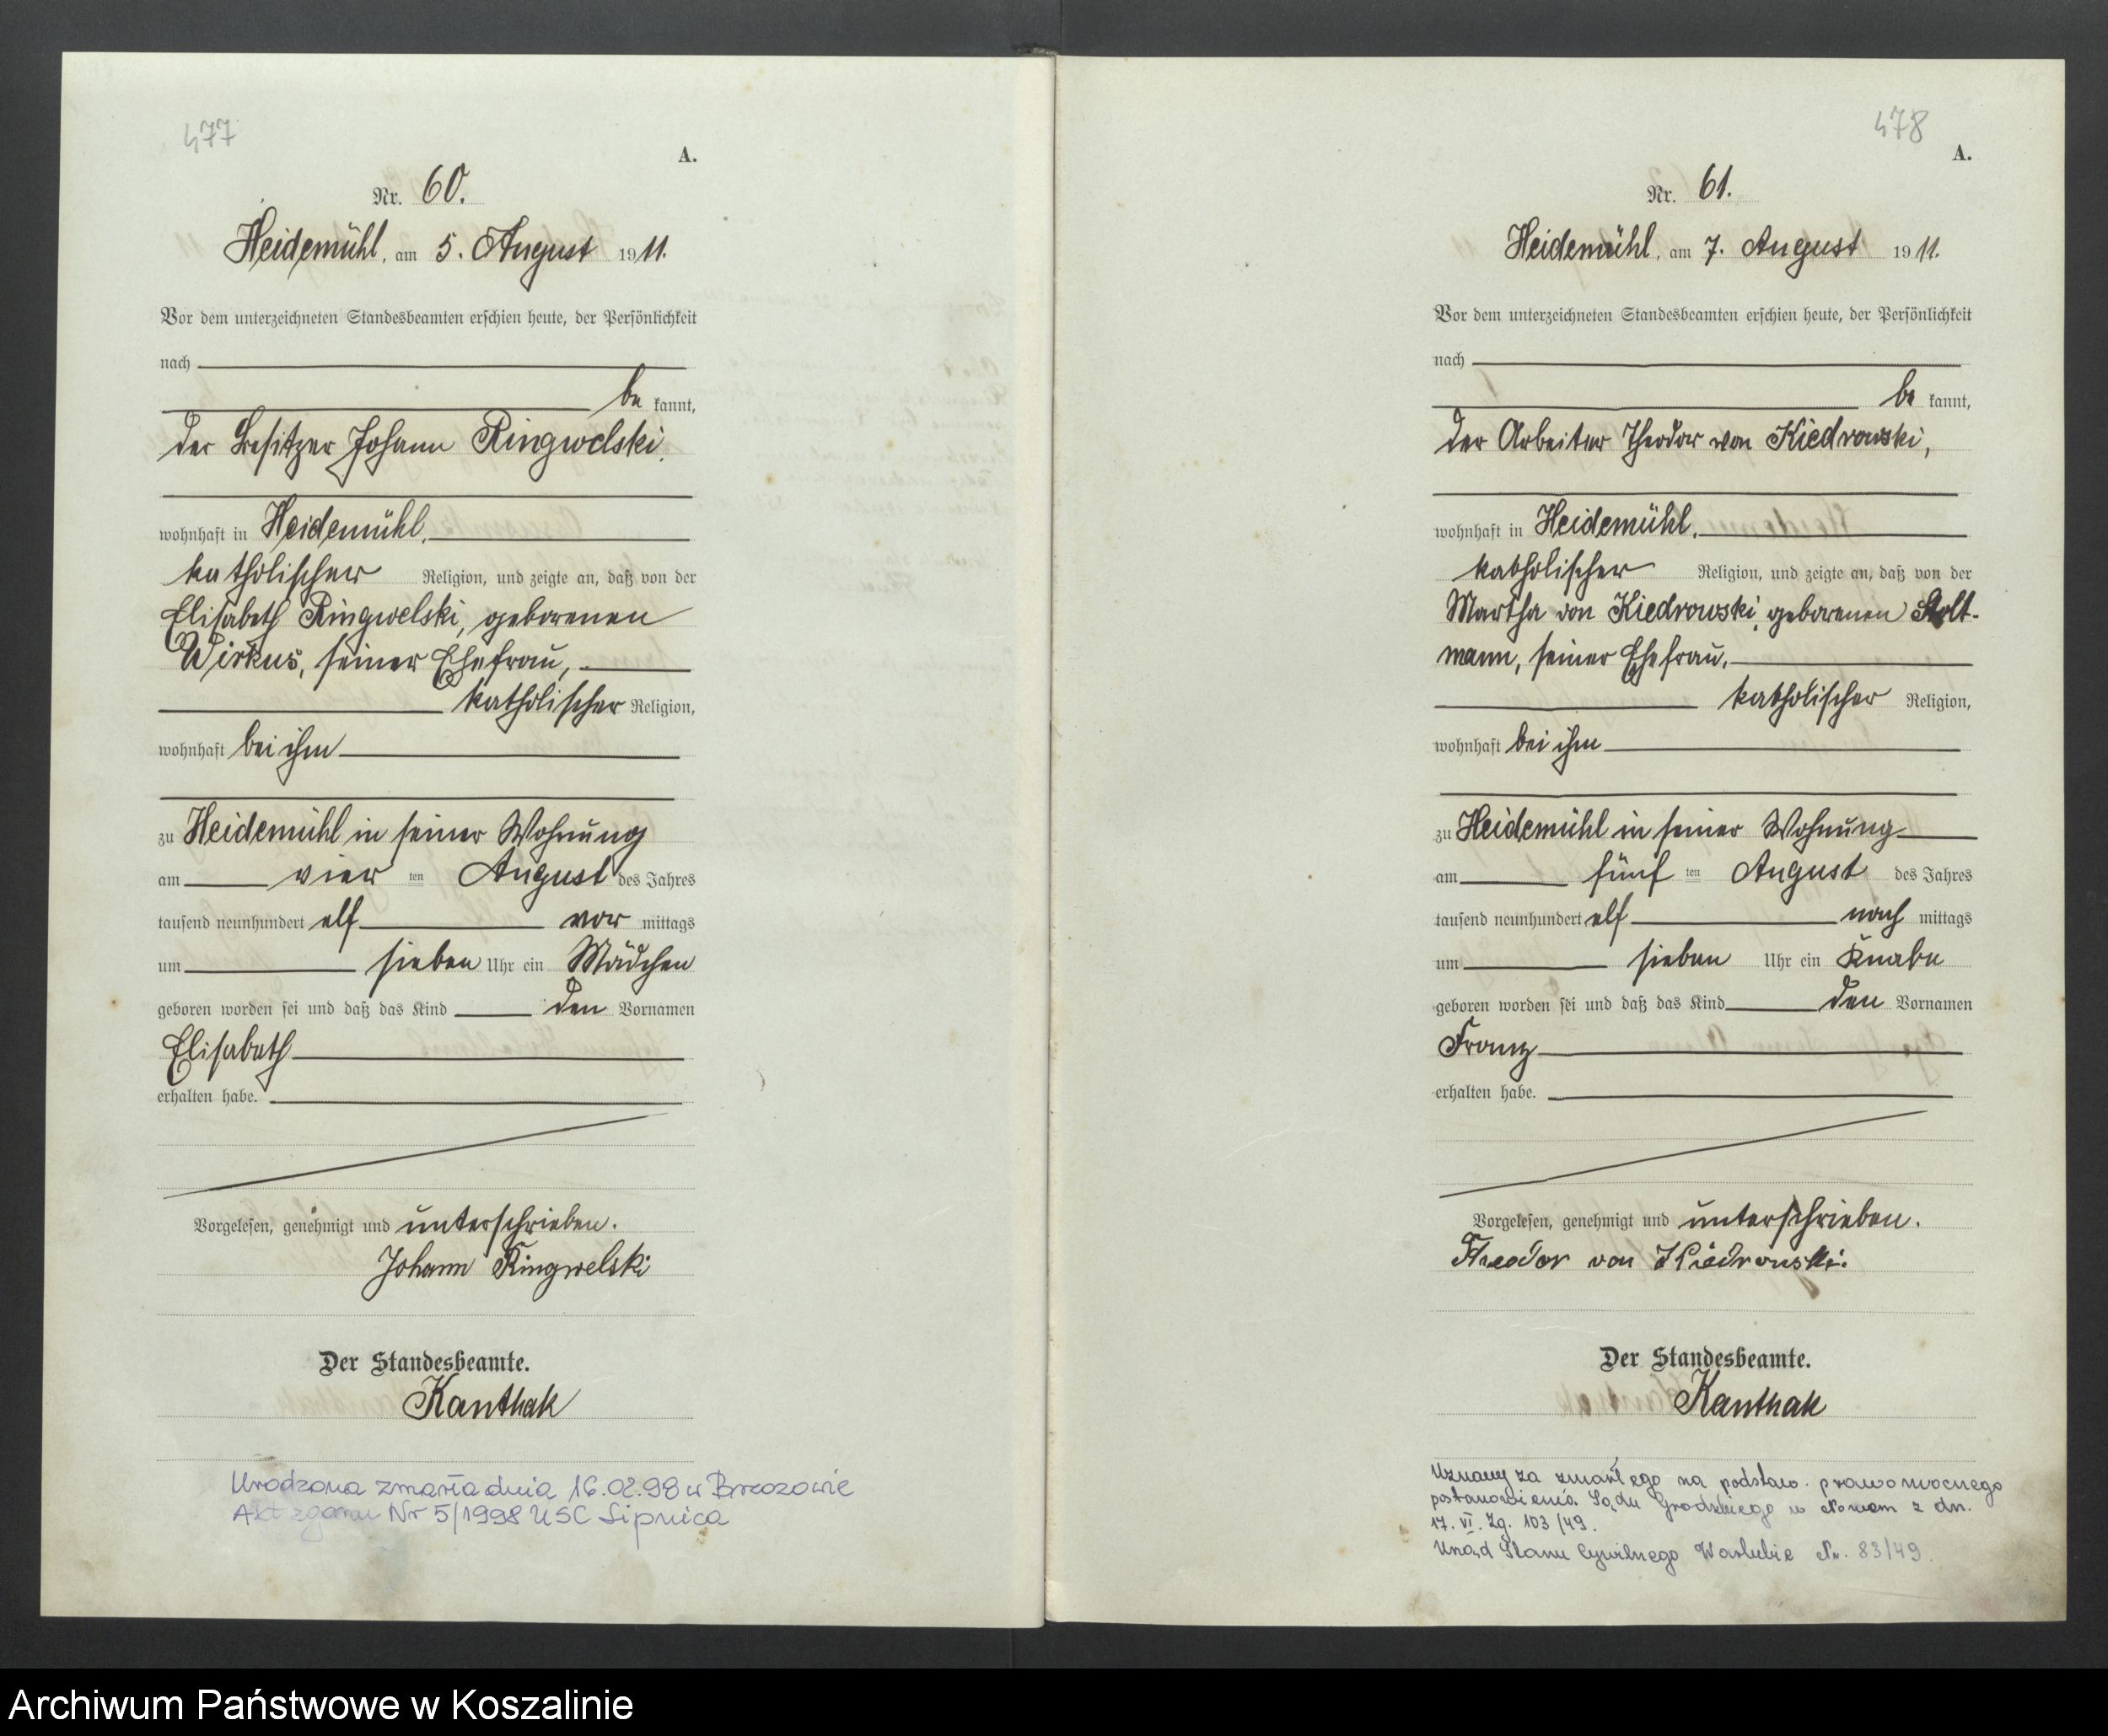 477
A.
Nr. 60.
Heidemühl, am 5. August 1911.
Vor dem unterzeichneten Standesbeamten erschien heute, der Persönlichkeit
nach
be kannt,
der Besitzer Johann Ringwelski,
wohnhaft in Heidemühl,
katholischer Religion, und zeigte an, daß von der
Elisabeth Ringwelski, geborenen
Wirkus, seiner Ehefrau,
katholischer Religion,
wohnhaft bei ihm
zu Heidemühl in seiner Wohnung
am vier ten August des Jahres
tausend neunhundert elf vor mittags
um sieben Uhr ein Mädchen
geboren worden sei und daß das Kind den Vornamen
Elisabeth
erhalten habe.
Vorgelesen, genehmigt und unterschrieben.
Johann Ringwelski
Der Standesbeamte.
Kanthak
Urodzona zmarła dnia 16.02.98 w Brzozowie
Akt zgonu Nr 5/1998 USC Lipnica
478
A.
Nr. 61.
Heidemühl, am 7. August 1911.
Vor dem unterzeichneten Standesbeamten erschien heute, der Persönlichkeit
nach
be kannt,
der Arbeiter Theodor von Kiedrowski,
wohnhaft in Heidemühl,
katholischer Religion, und zeigte an, daß von der
Martha von Kiedrowski, geborenen Stolt-
mann, seiner Ehefrau,
katholischer Religion,
wohnhaft bei ihm
zu Heidemühl in seiner Wohnung
am fünf ten August des Jahres
tausend neunhundert elf nach mittags
um sieben Uhr ein Knabe
geboren worden sei und daß das Kind den Vornamen
Franz
erhalten habe.
Vorgelesen, genehmigt und unterschrieben.
Theodor von Kiedrowski.
Der Standesbeamte.
Kanthak
Uznany za zmarłego na podstaw. prawomocnego
postanowienia Sądu Grodzkiego w Nowem z dn.
17. VI. Zg. 103/49.
Urząd Stanu Cywilnego Warlubie Nr. 83/49.
Archiwum Państwowe w Koszalinie